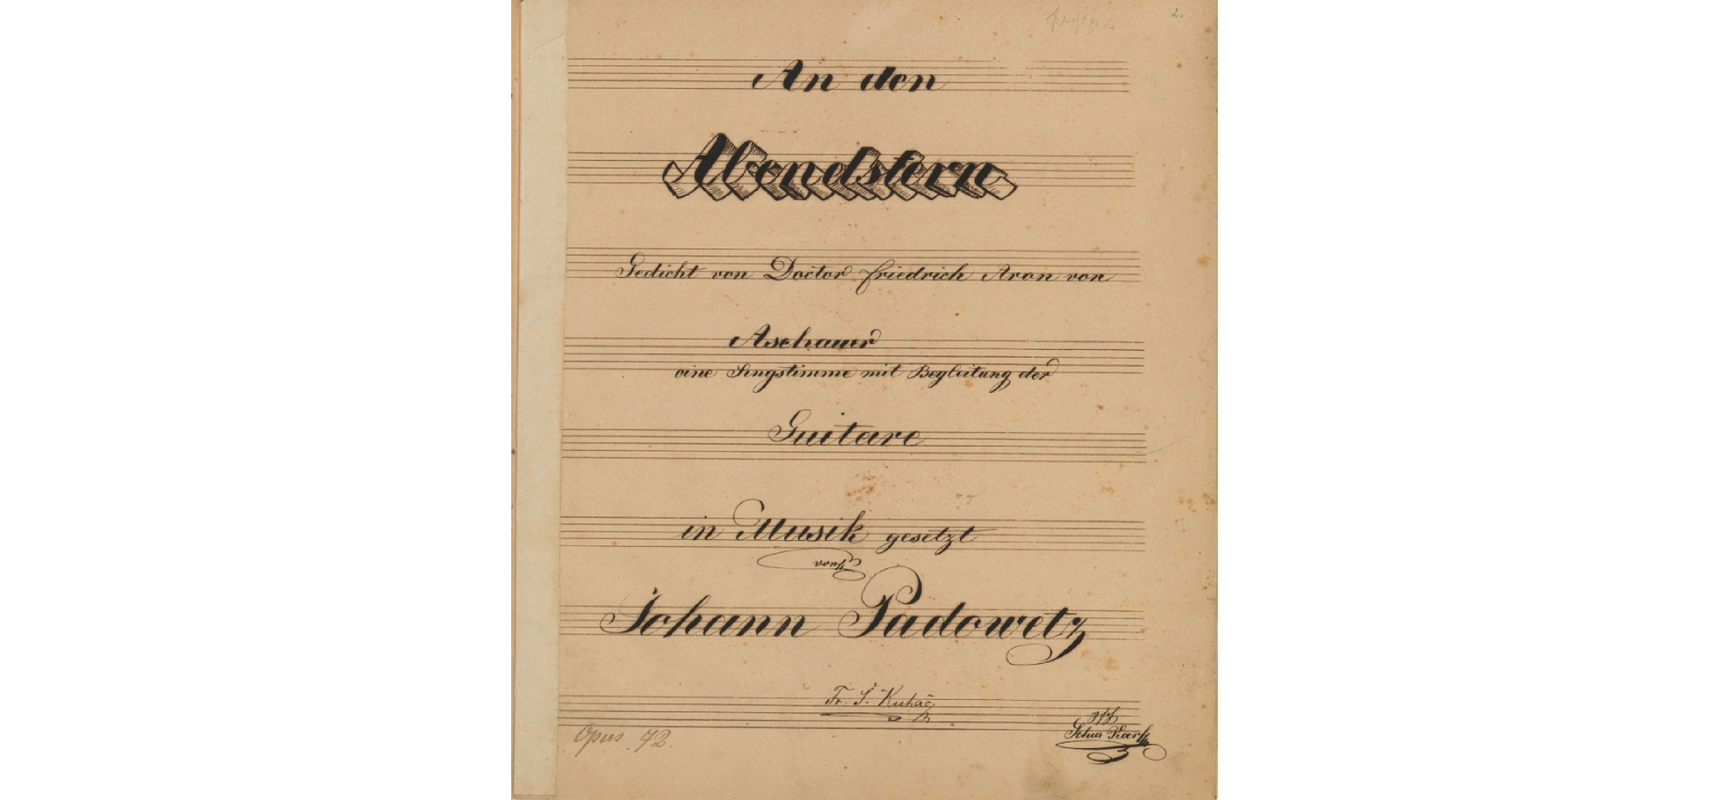 2.
An den
Abendstern
Gedicht von Doctor Friedrich Aron von
Aschauer
eine Singstimme mit Begleitung der
Guitare
in Musik gesetzt
von
Johann Padowetz
Fr. Š. Kuhač
Opus 42.